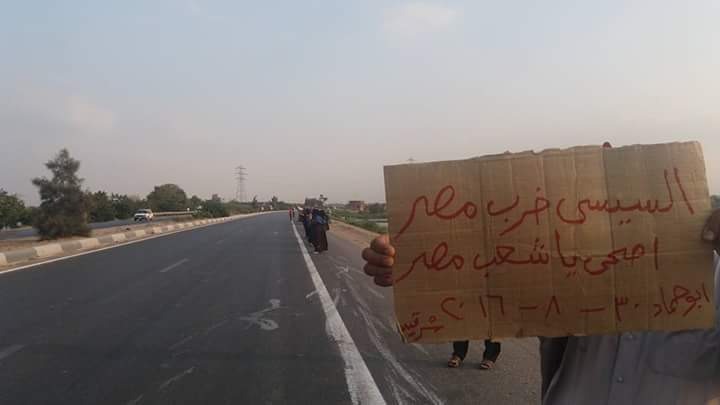 السيسى خرب مصر
اصحى يا شعب مصر
ابوحماد ٣٠ - ٨ - ٢٠١٦ شرقيه